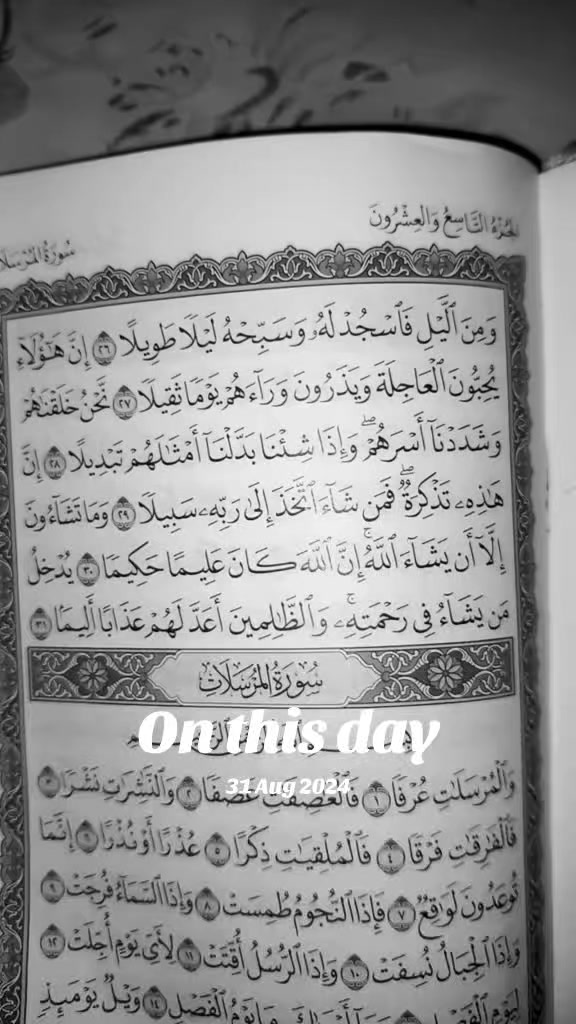 الجُزْءُ التَّاسِعُ وَالعِشْرُونَ
سُورَةُ المُرْسَلَاتِ
وَمِنَ ٱلَّيْلِ فَٱسْجُدْ لَهُۥ وَسَبِّحْهُ لَيْلًا طَوِيلًا ٢٦ إِنَّ هَٰٓؤُلَآءِ
يُحِبُّونَ ٱلْعَاجِلَةَ وَيَذَرُونَ وَرَآءَهُمْ يَوْمًا ثَقِيلًا ٢٧ نَّحْنُ خَلَقْنَٰهُمْ
وَشَدَدْنَآ أَسْرَهُمْۖ وَإِذَا شِئْنَا بَدَّلْنَآ أَمْثَٰلَهُمْ تَبْدِيلًا ٢٨ إِنَّ
هَٰذِهِۦ تَذْكِرَةٌۖ فَمَن شَآءَ ٱتَّخَذَ إِلَىٰ رَبِّهِۦ سَبِيلًا ٢٩ وَمَا تَشَآءُونَ
إِلَّآ أَن يَشَآءَ ٱللَّهُۚ إِنَّ ٱللَّهَ كَانَ عَلِيمًا حَكِيمًا ٣٠ يُدْخِلُ
مَن يَشَآءُ فِى رَحْمَتِهِۦۚ وَٱلظَّٰلِمِينَ أَعَدَّ لَهُمْ عَذَابًا أَلِيمًۢا ٣١
سُورَةُ المُرْسَلَاتِ
On this day
31 Aug 2024
وَٱلْمُرْسَلَٰتِ عُرْفًا ١ فَٱلْعَٰصِفَٰتِ عَصْفًا ٢ وَٱلنَّٰشِرَٰتِ نَشْرًا ٣
فَٱلْفَٰرِقَٰتِ فَرْقًا ٤ فَٱلْمُلْقِيَٰتِ ذِكْرًا ٥ عُذْرًا أَوْ نُذْرًا ٦ إِنَّمَا
تُوعَدُونَ لَوَٰقِعٌ ٧ فَإِذَا ٱلنُّجُومُ طُمِسَتْ ٨ وَإِذَا ٱلسَّمَآءُ فُرِجَتْ ٩
وَإِذَا ٱلْجِبَالُ نُسِفَتْ ١٠ وَإِذَا ٱلرُّسُلُ أُقِّتَتْ ١١ لِأَىِّ يَوْمٍ أُجِّلَتْ ١٢
لِيَوْمِ ٱلْفَصْلِ يَوْمُ ٱلْفَصْلِ ١٤ وَيْلٌ يَوْمَئِذٍ